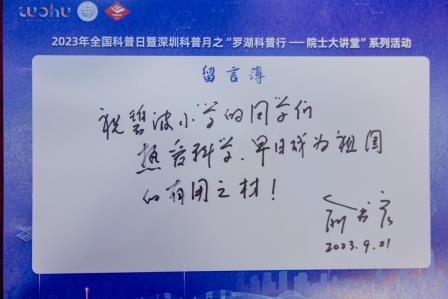 2023年全国科普日暨深圳科普月之“罗湖科普行——院士大讲堂”系列活动
留言薄
祝碧波小学的同学们
热爱科学、早日成为祖国
的有用之材！
2023.9.21